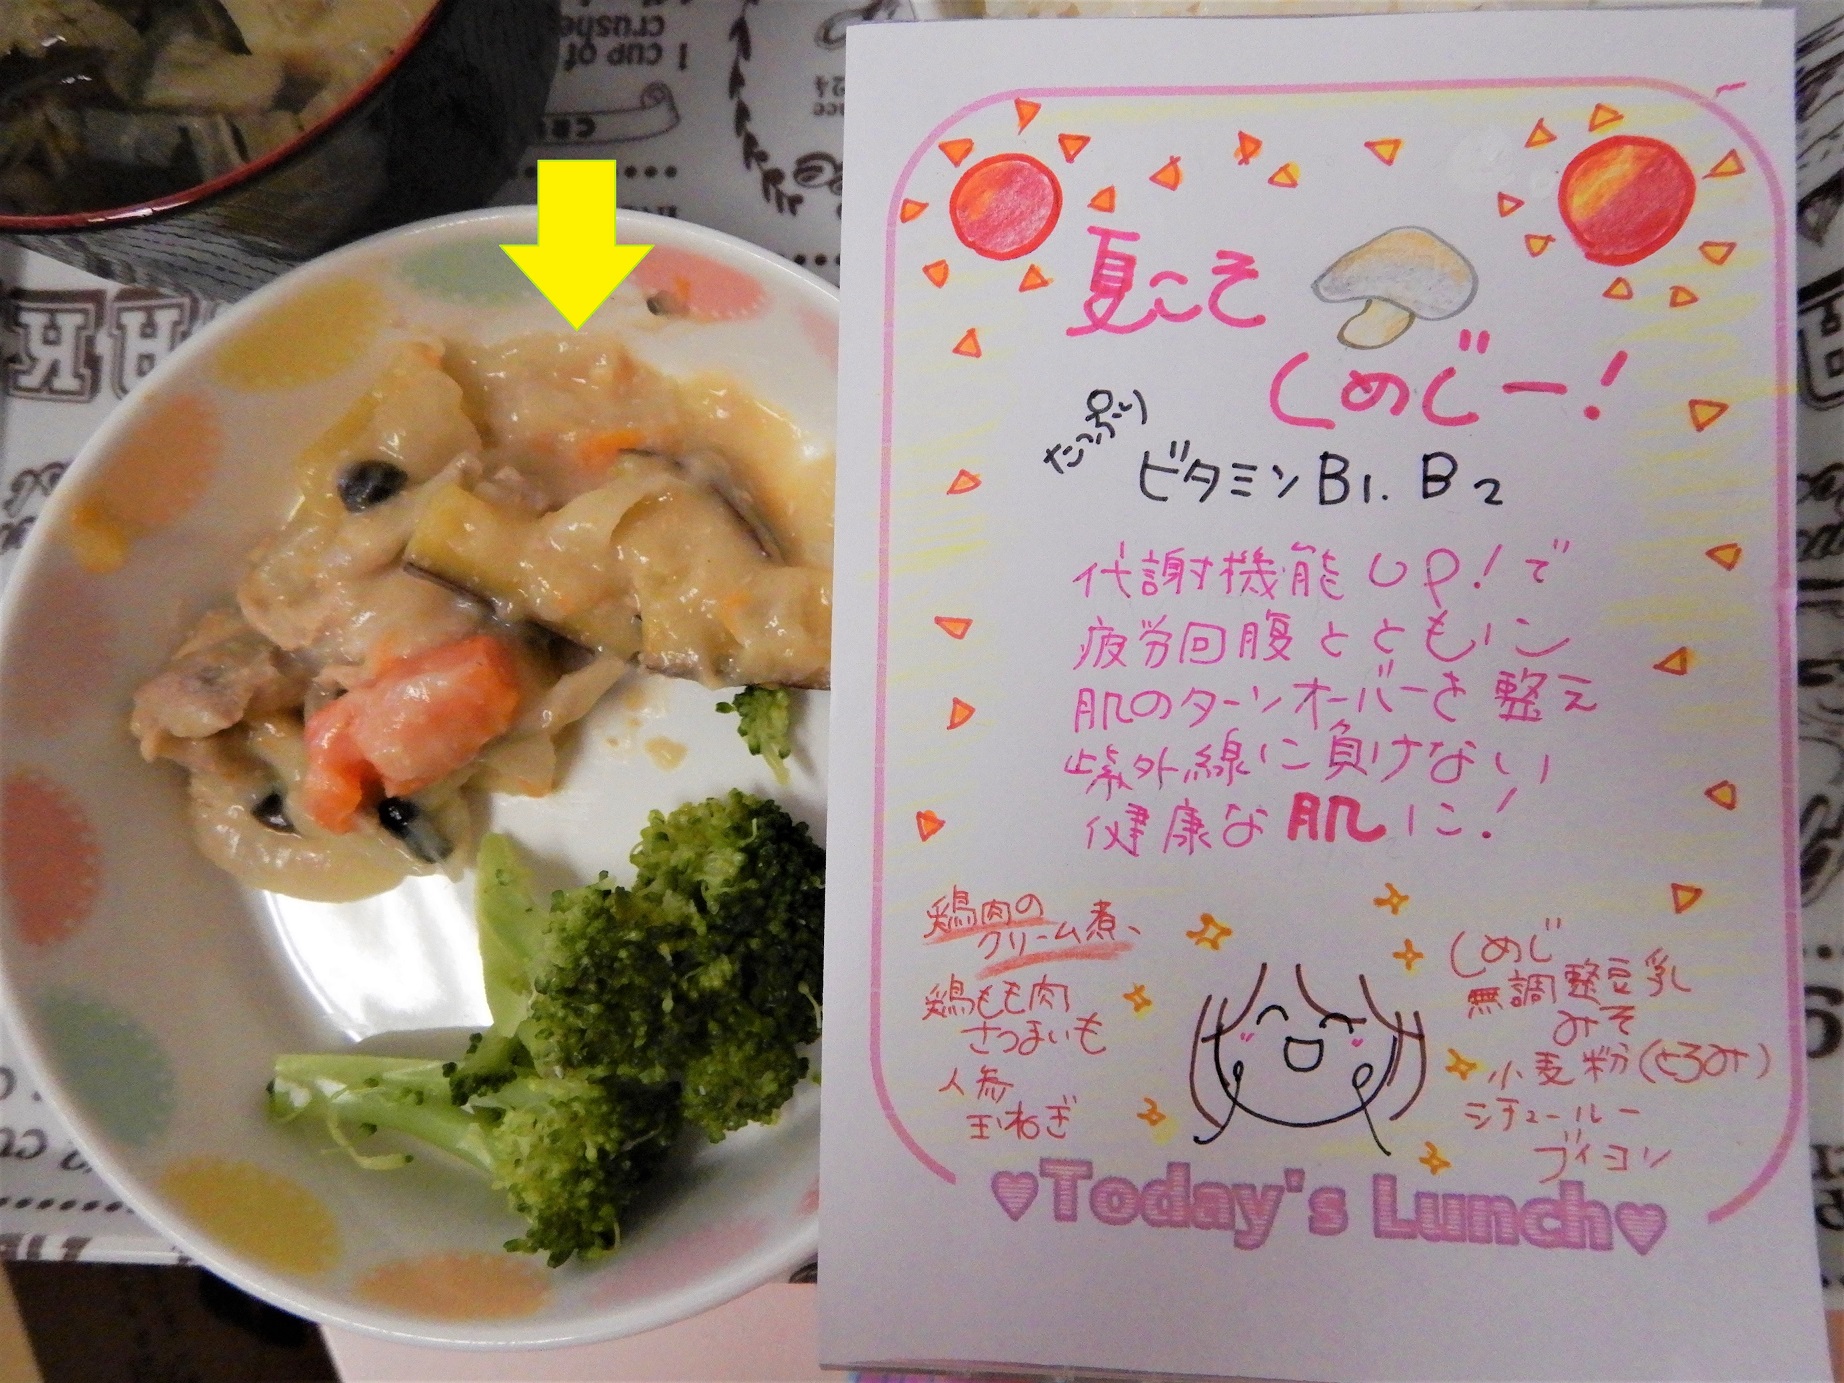 夏こそ
しめじー!
たっぷり
ビタミンB1. B2
代謝機能UP!で
疲労回腹とともに
肌のターンオーバーを整え
紫外線に負けない
健康な肌に!
鶏肉の
クリーム煮、
鶏もも肉
さつまいも
人参
玉ねぎ
しめじ
無調整豆乳
みそ
小麦粉(とろみ)
シチュールー
ブイヨン
♥Today's Lunch♥
1 CUP of
crushe